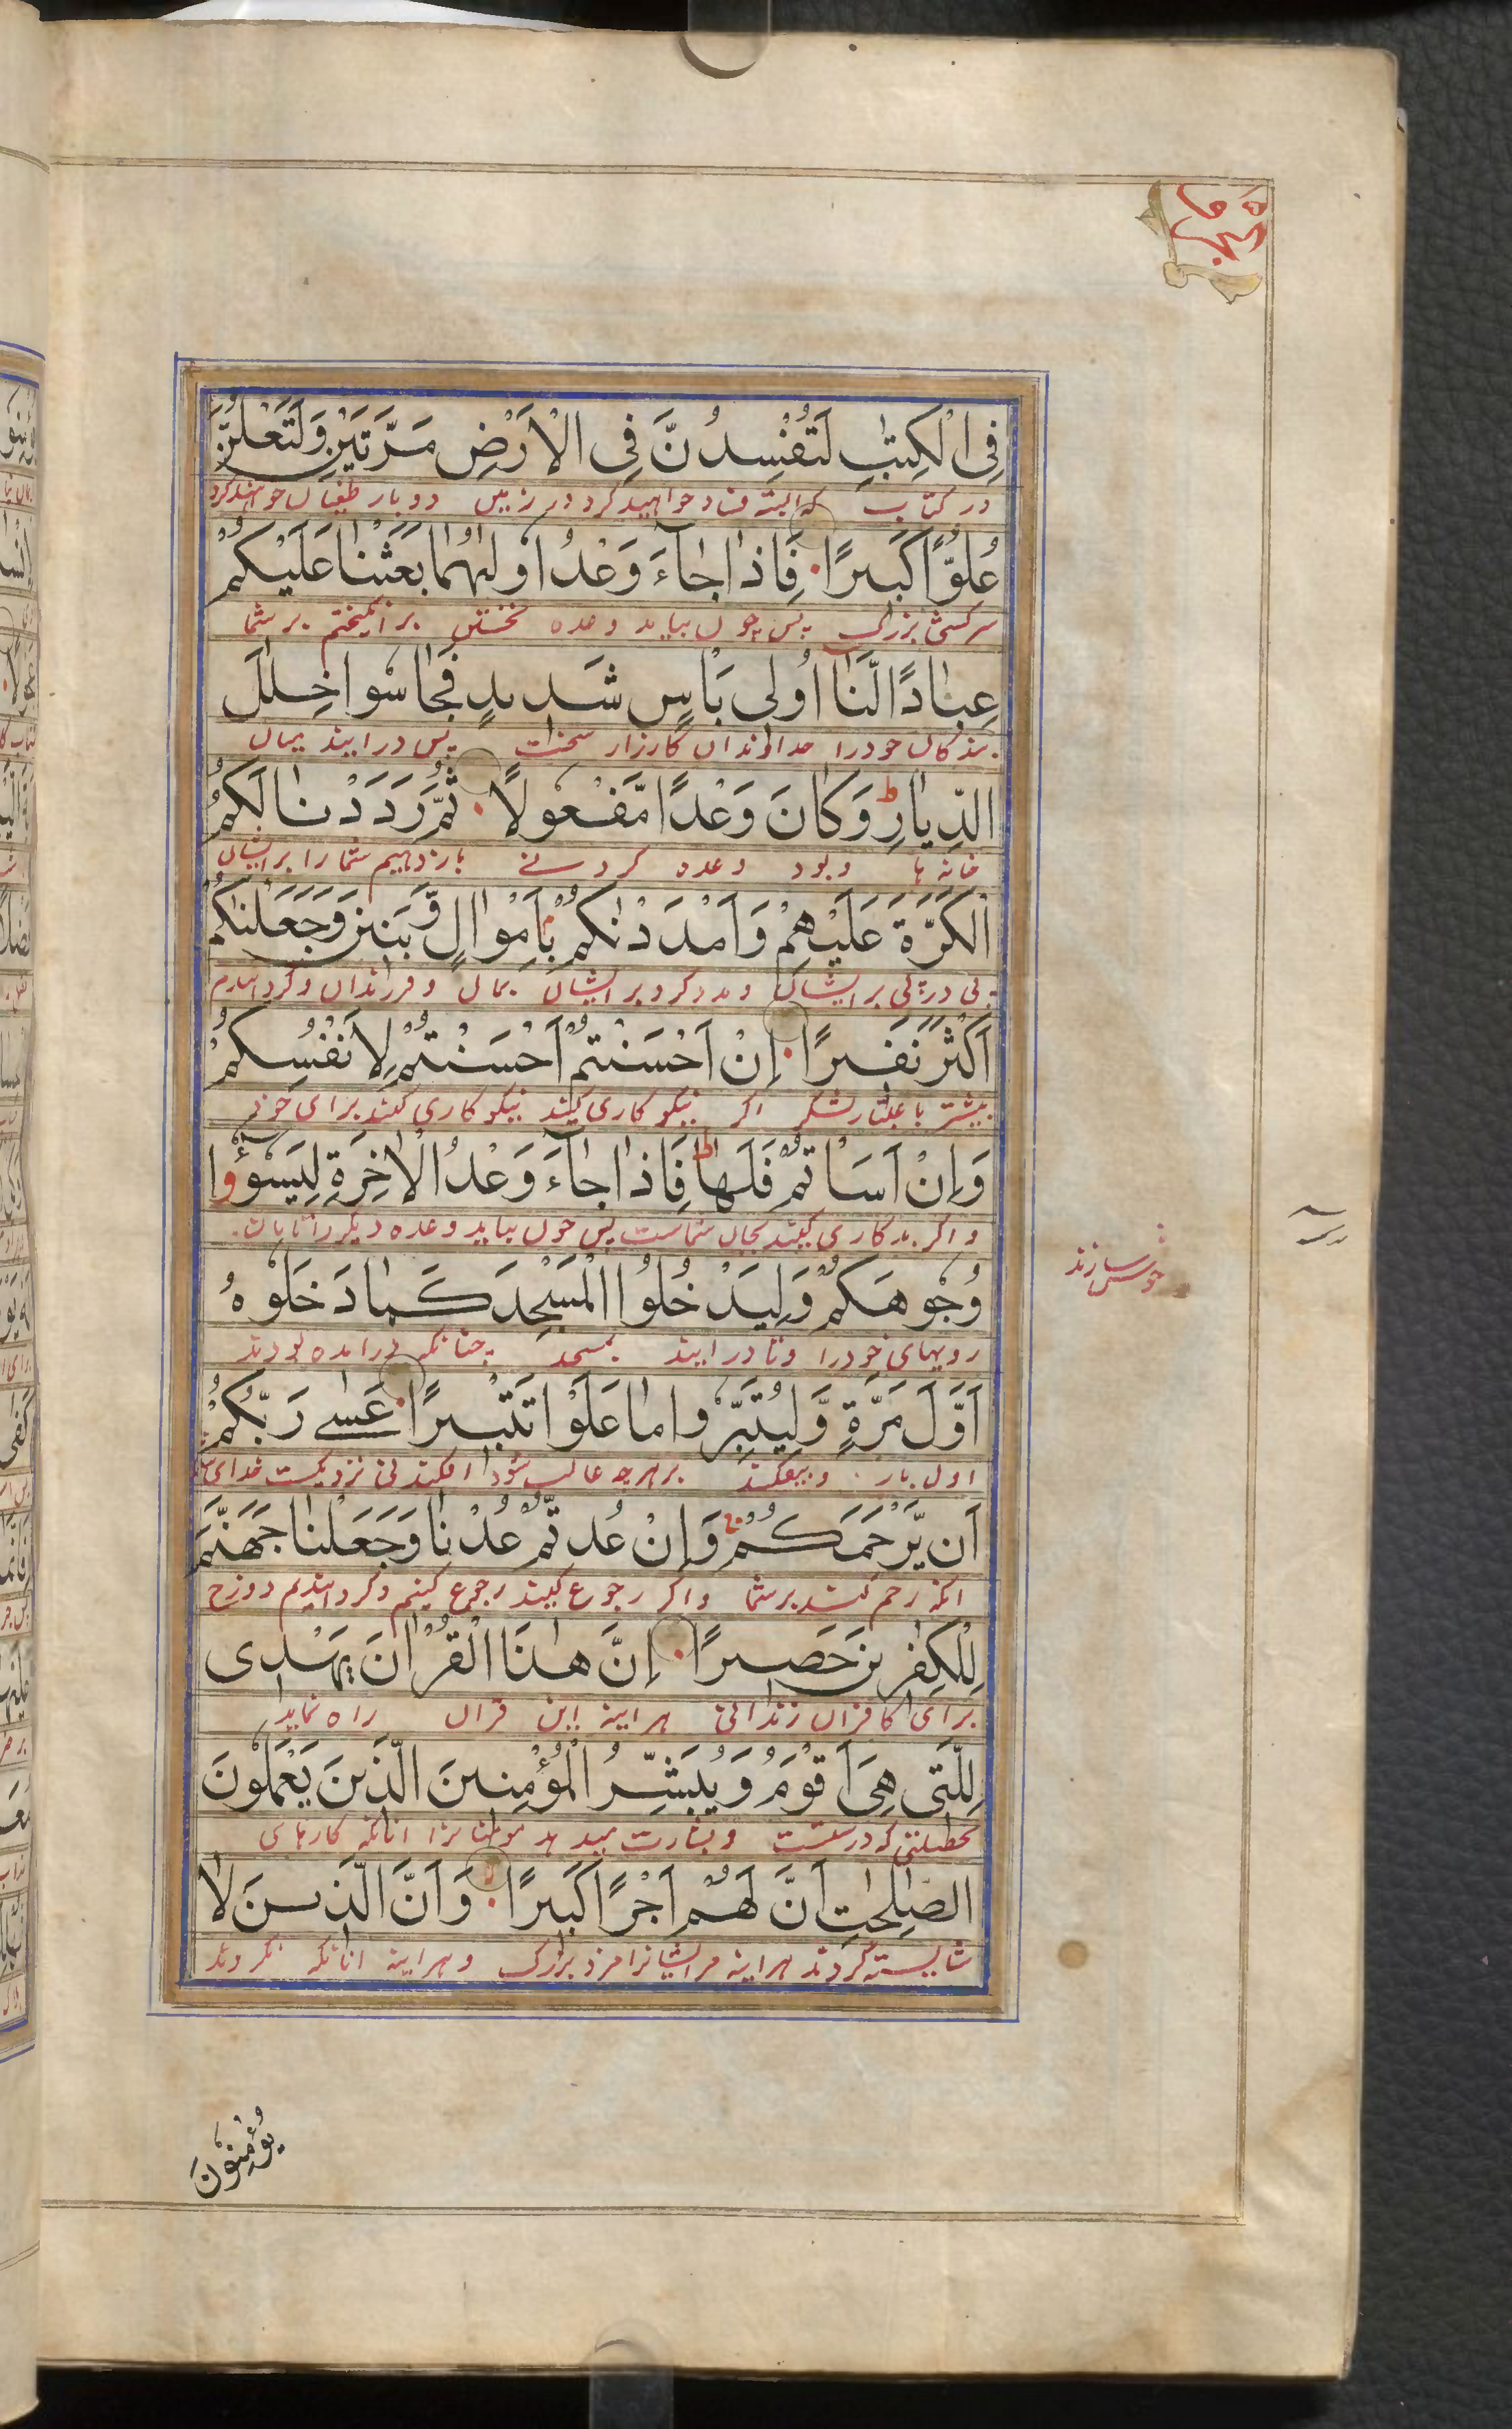 الجزء ١٥
فِی الْكِتٰبِ لَتُفْسِدُنَّ فِی الْاَرْضِ مَرَّتَیْنِ وَلَتَعْلُنَّ
در کتاب که البته فساد خواهید کرد در زمین دو بار طغیان خواهند کرد
عُلُوًّا كَبِیْرًا فَاِذَا جَآءَ وَعْدُ اُوْلٰىهُمَا بَعَثْنَا عَلَیْكُمْ
سرکشی بزرک پس چون بیاید وعده نخستین برانکیختم بر شما
عِبَادًا لَّنَا اُولِی بَاْسٍ شَدِیْدٍ فَجَاسُوْا خِلٰلَ
بندکان خودرا خداوندان کارزار سخت پس درایند میان
الدِّیَارِ ط وَكَانَ وَعْدًا مَّفْعُوْلًا ثُمَّ رَدَدْنَا لَكُمُ
خانه ها و بود وعده کردنے باز دهیم شما را بر ایشان
الْكَرَّةَ عَلَیْهِمْ وَاَمْدَدْنٰكُمْ بِاَمْوَالٍ وَّبَنِیْنَ وَجَعَلْنٰكُمْ
پی در پی بر ایشان و مدد کرد بر ایشان بمال و فرزندان و کردانیدم
اَكْثَرَ نَفِیْرًا اِنْ اَحْسَنْتُمْ اَحْسَنْتُمْ لِاَنْفُسِكُمْ
بیشتر باعتبار لشکر اکر نیکوکاری کنید نیکوکاری کنند برای خود
وَاِنْ اَسَاْتُمْ فَلَهَا ط فَاِذَا جَآءَ وَعْدُ الْاٰخِرَةِ لِیَسُوْٓءٗوْا
و اکر بدکاری کنید بجان شماست پس چون بیاید وعده دیکر را تا بان
وُجُوْهَكُمْ وَلِیَدْخُلُوا الْمَسْجِدَ كَمَا دَخَلُوْهُ
رویهای خودرا و تا درایند بمسجد چنانکه درامده بودند
اَوَّلَ مَرَّةٍ وَّلِیُتَبِّرُوْا مَا عَلَوْا تَتْبِیْرًا عَسٰے رَبُّكُمْ
اول بار و بیفکند بر هرچه غالب شود افکندنی نزدیکست خدای
اَن یَّرْحَمَكُمْ وَاِنْ عُدتُّمْ عُدْنَا وَجَعَلْنَا جَهَنَّمَ
انکه رحم کند بر شما و اکر رجوع کنید رجوع کنیم و کردانیدیم دوزخ
لِلْكٰفِرِیْنَ حَصِیْرًا اِنَّ هٰذَا الْقُرْاٰنَ یَهْدِی
برای کافران زندانی هراینه این قران راه نماید
لِلَّتِی هِیَ اَقْوَمُ وَیُبَشِّرُ الْمُؤْمِنِیْنَ الَّذِیْنَ یَعْمَلُوْنَ
بخصلتی که درستست و بشارت میدهد مومنانرا انانکه کارهای
الصّٰلِحٰتِ اَنَّ لَهُمْ اَجْرًا كَبِیْرًا وَاَنَّ الَّذِیْنَ لَا
شایسته کردند هراینه مر ایشانرا مزد بزرک و هراینه انانکه نکروند
یُؤْمِنُوْنَ